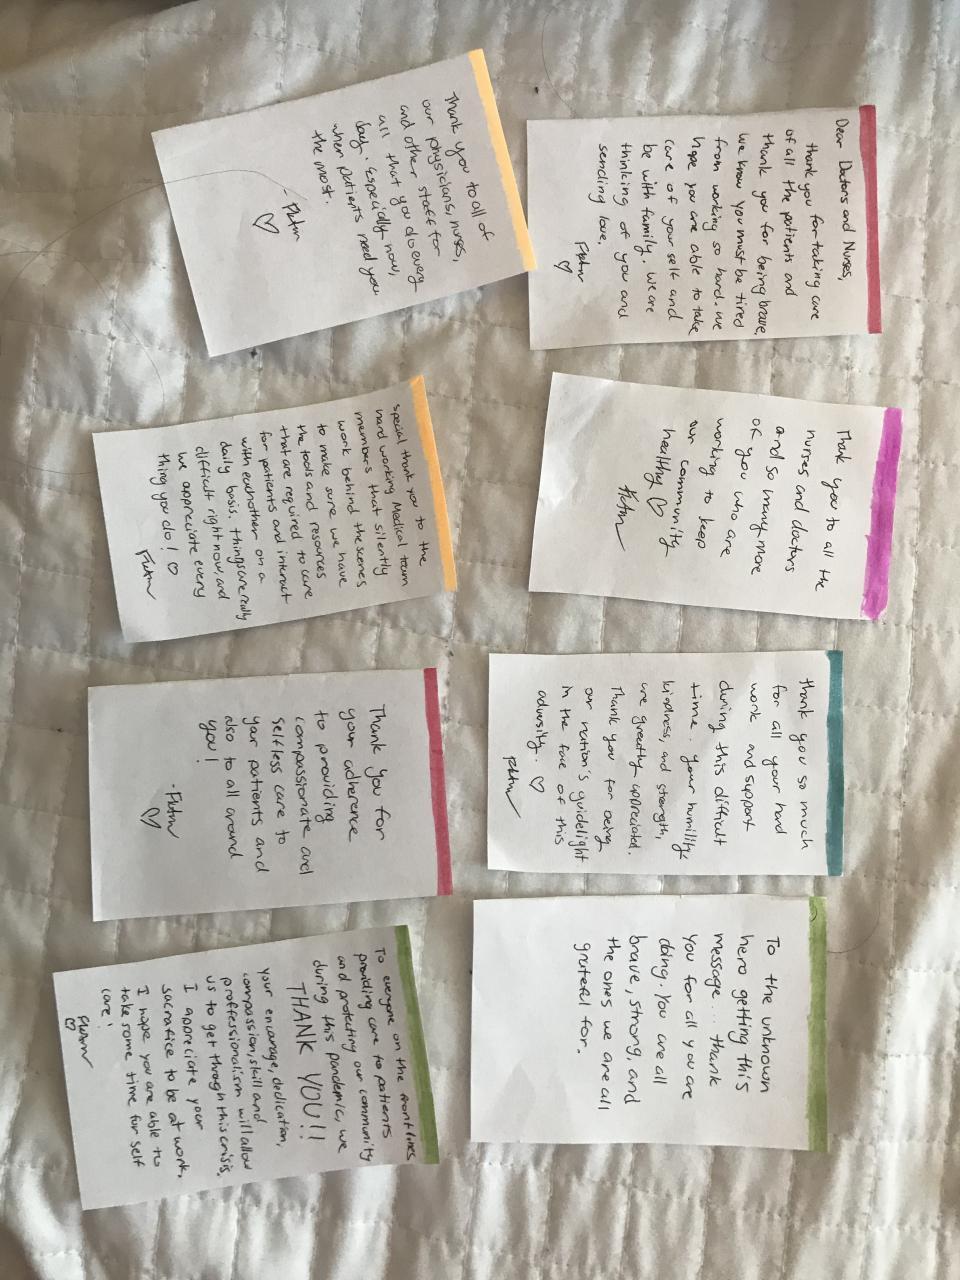 Dear Doctors and Nurses,
thank you for taking care
of all the patients and
thank you for being brave.
we know you must be tired
from working so hard. we
hope you are able to take
care of your self and
be with family. we are
thinking of you and
sending love,
Thank you to all the
nurses and doctors
and so many more
of you who are
working to keep
our community
healthy ♡
thank you so much
for all your hard
work and support
during this difficult
time. your humility,
kindness, and strength,
are greatly appreciated.
Thank you for being
our nation's guidelight
in the face of this
adversity. ♡
To the unknown
hero getting this
message... thank
you for all you are
doing. You are all
brave, strong, and
the ones we are all
grateful for.
Thank you to all of
our physicians, nurses,
and other staff for
all that you do every
day. Especially now,
when patients need you
the most.
special thank you to the
hard working Medical team
members that silently
work behind the scenes
to make sure we have
the tools and resources
that are required to care
for patients and interact
with eachother on a
daily basis. things are really
difficult right now, and
we appreciate every
thing you do! ♡
Thank you for
your adherence
to providing
compassionate and
selfless care to
your patients and
also to all around
you!
To everyone on the front lines
providing care to patients
and protecting our community
during this pandemic, we
THANK YOU!!
your encourage, dedication,
compassion, skill and
proffessionalism will allow
us to get through this crisis.
I appreciate your
sacrafice to be at work,
I hope you are able to
take some time for self
care!